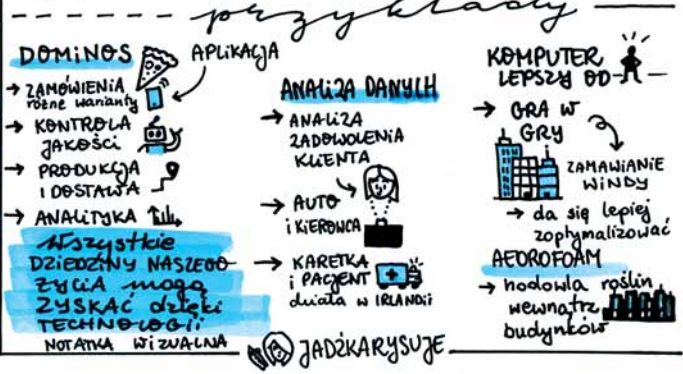 przykłady
DOMINOS
APLIKACJA
→ ZAMÓWIENIA
różne warianty
→ KONTROLA
JAKOŚCI
→ PRODUKCJA
I DOSTAWA
→ ANALITYKA
Wszystkie
DZIEDZINY NASZEGO
ŻYCIA mogą
ZYSKAĆ dzięki
TECHNOLOGii
NOTATKA WiZUALNA
ANALiZA DANYCH
→ ANALiZA
ZADOWOLENiA
KLiENTA
→ AUTO
i KiEROWCA
→ KARETKA
i PACJENT
działa w IRLANDii
KOMPUTER
LEPSZY OD
→ GRA W
GRY
ZAMAWiANiE
WiNDY
→ da się lepiej
zoptymalizować
AEOROFOAM
→ hodowla roślin
wewnątrz
budynków
JADŹKARYSUJE